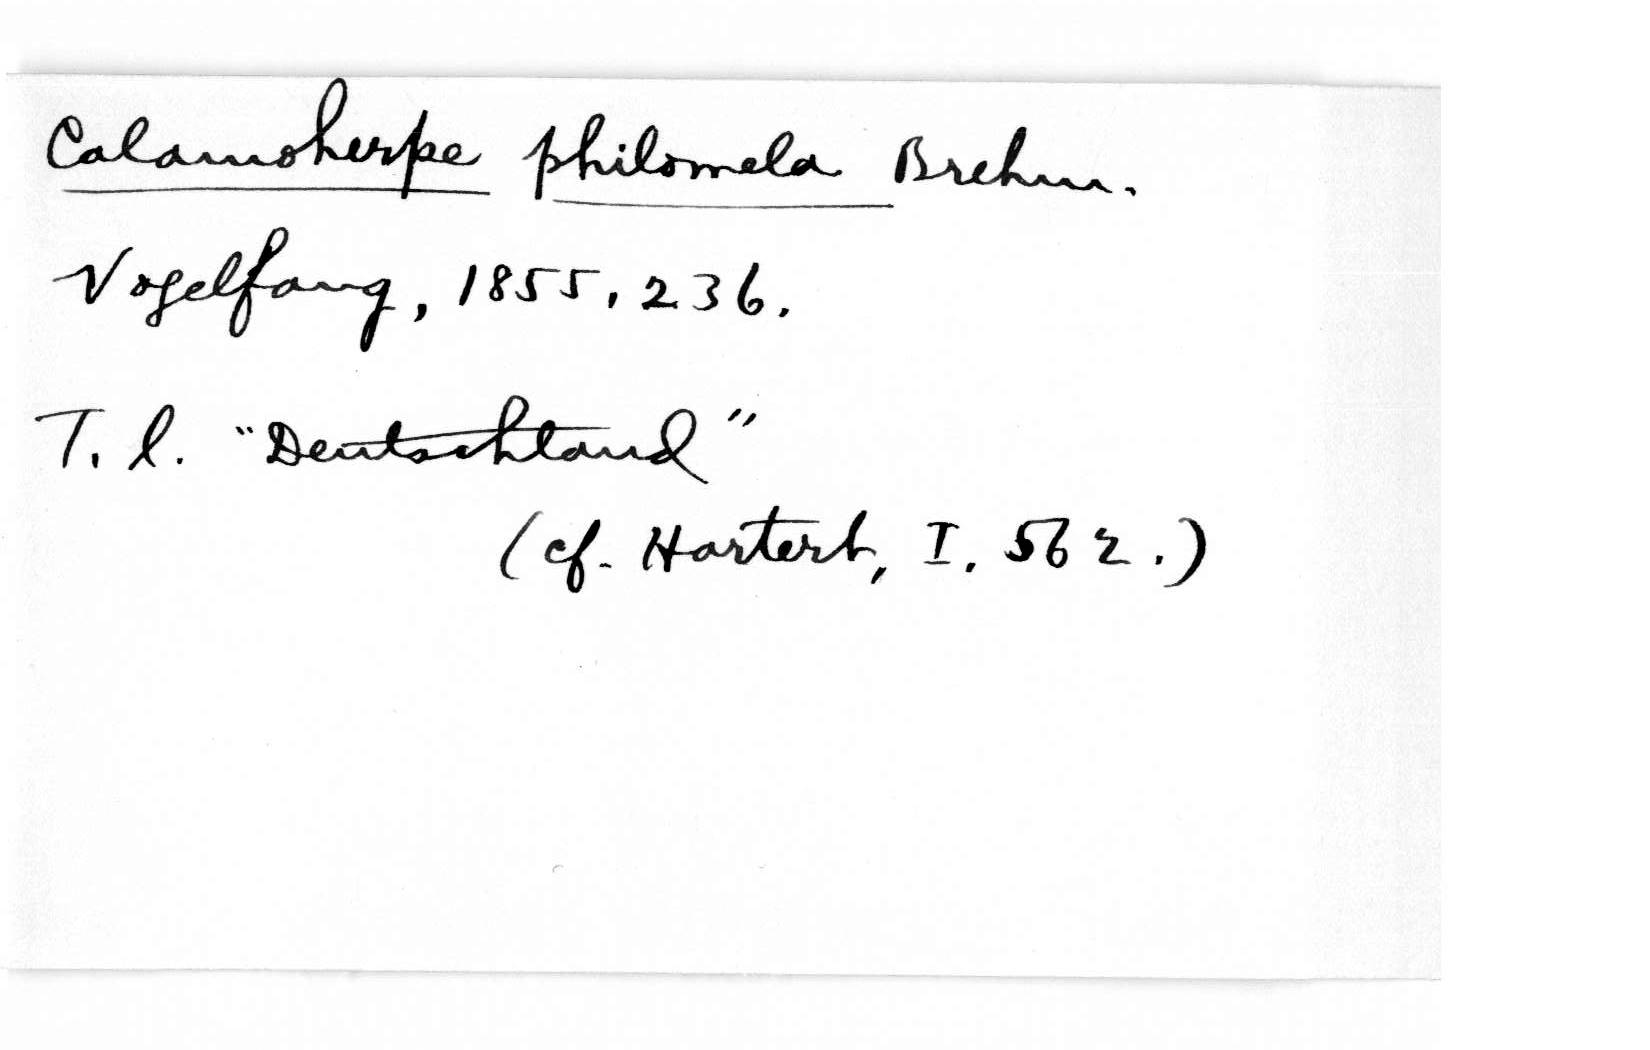 Calamoherpe philomela Brehm.
Vogelfang, 1855, 236.
T. l. "Deutschland"
(cf. Hartert, I. 562.)